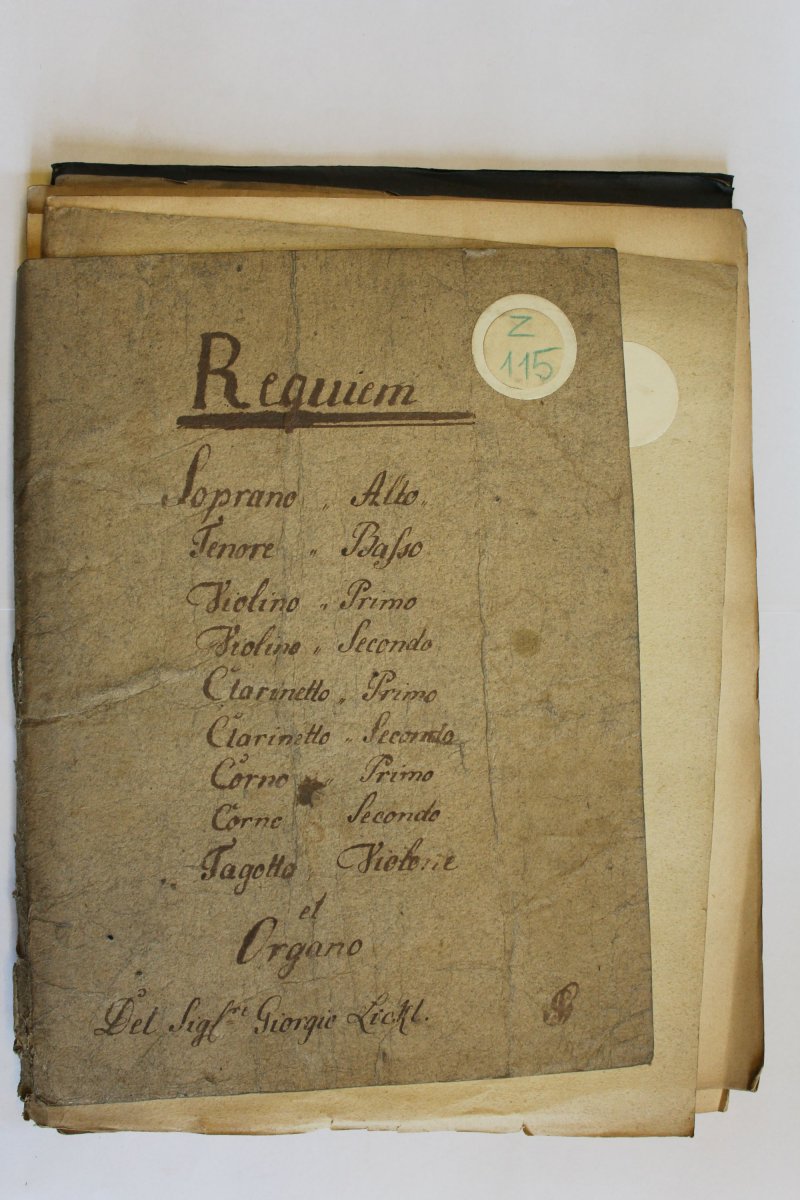 Z
115
Requiem
Soprano „ Alto„
Tenore „ Basso
Violino „ Primo
Violino „ Secondo
Clarinetto „ Primo
Clarinetto „ Secondo
Corno „ Primo
Corno Secondo
Fagotto „ Violone
et
Organo
Del Sigl:re Giorgio Lickl.